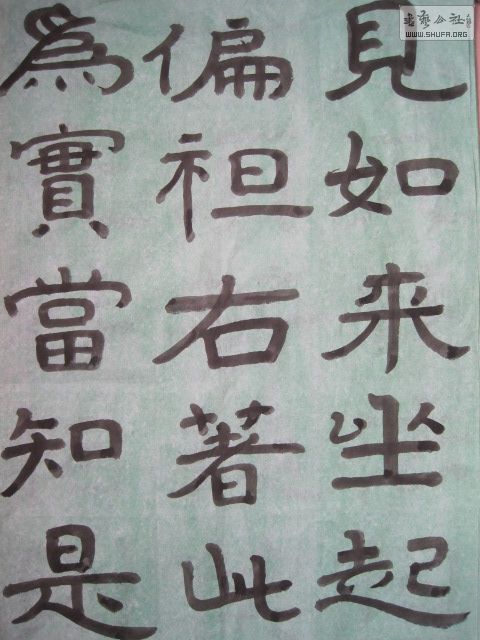 見如来坐起
偏袒右著此
為實當知是
書艺公社
WWW.SHUFA.ORG